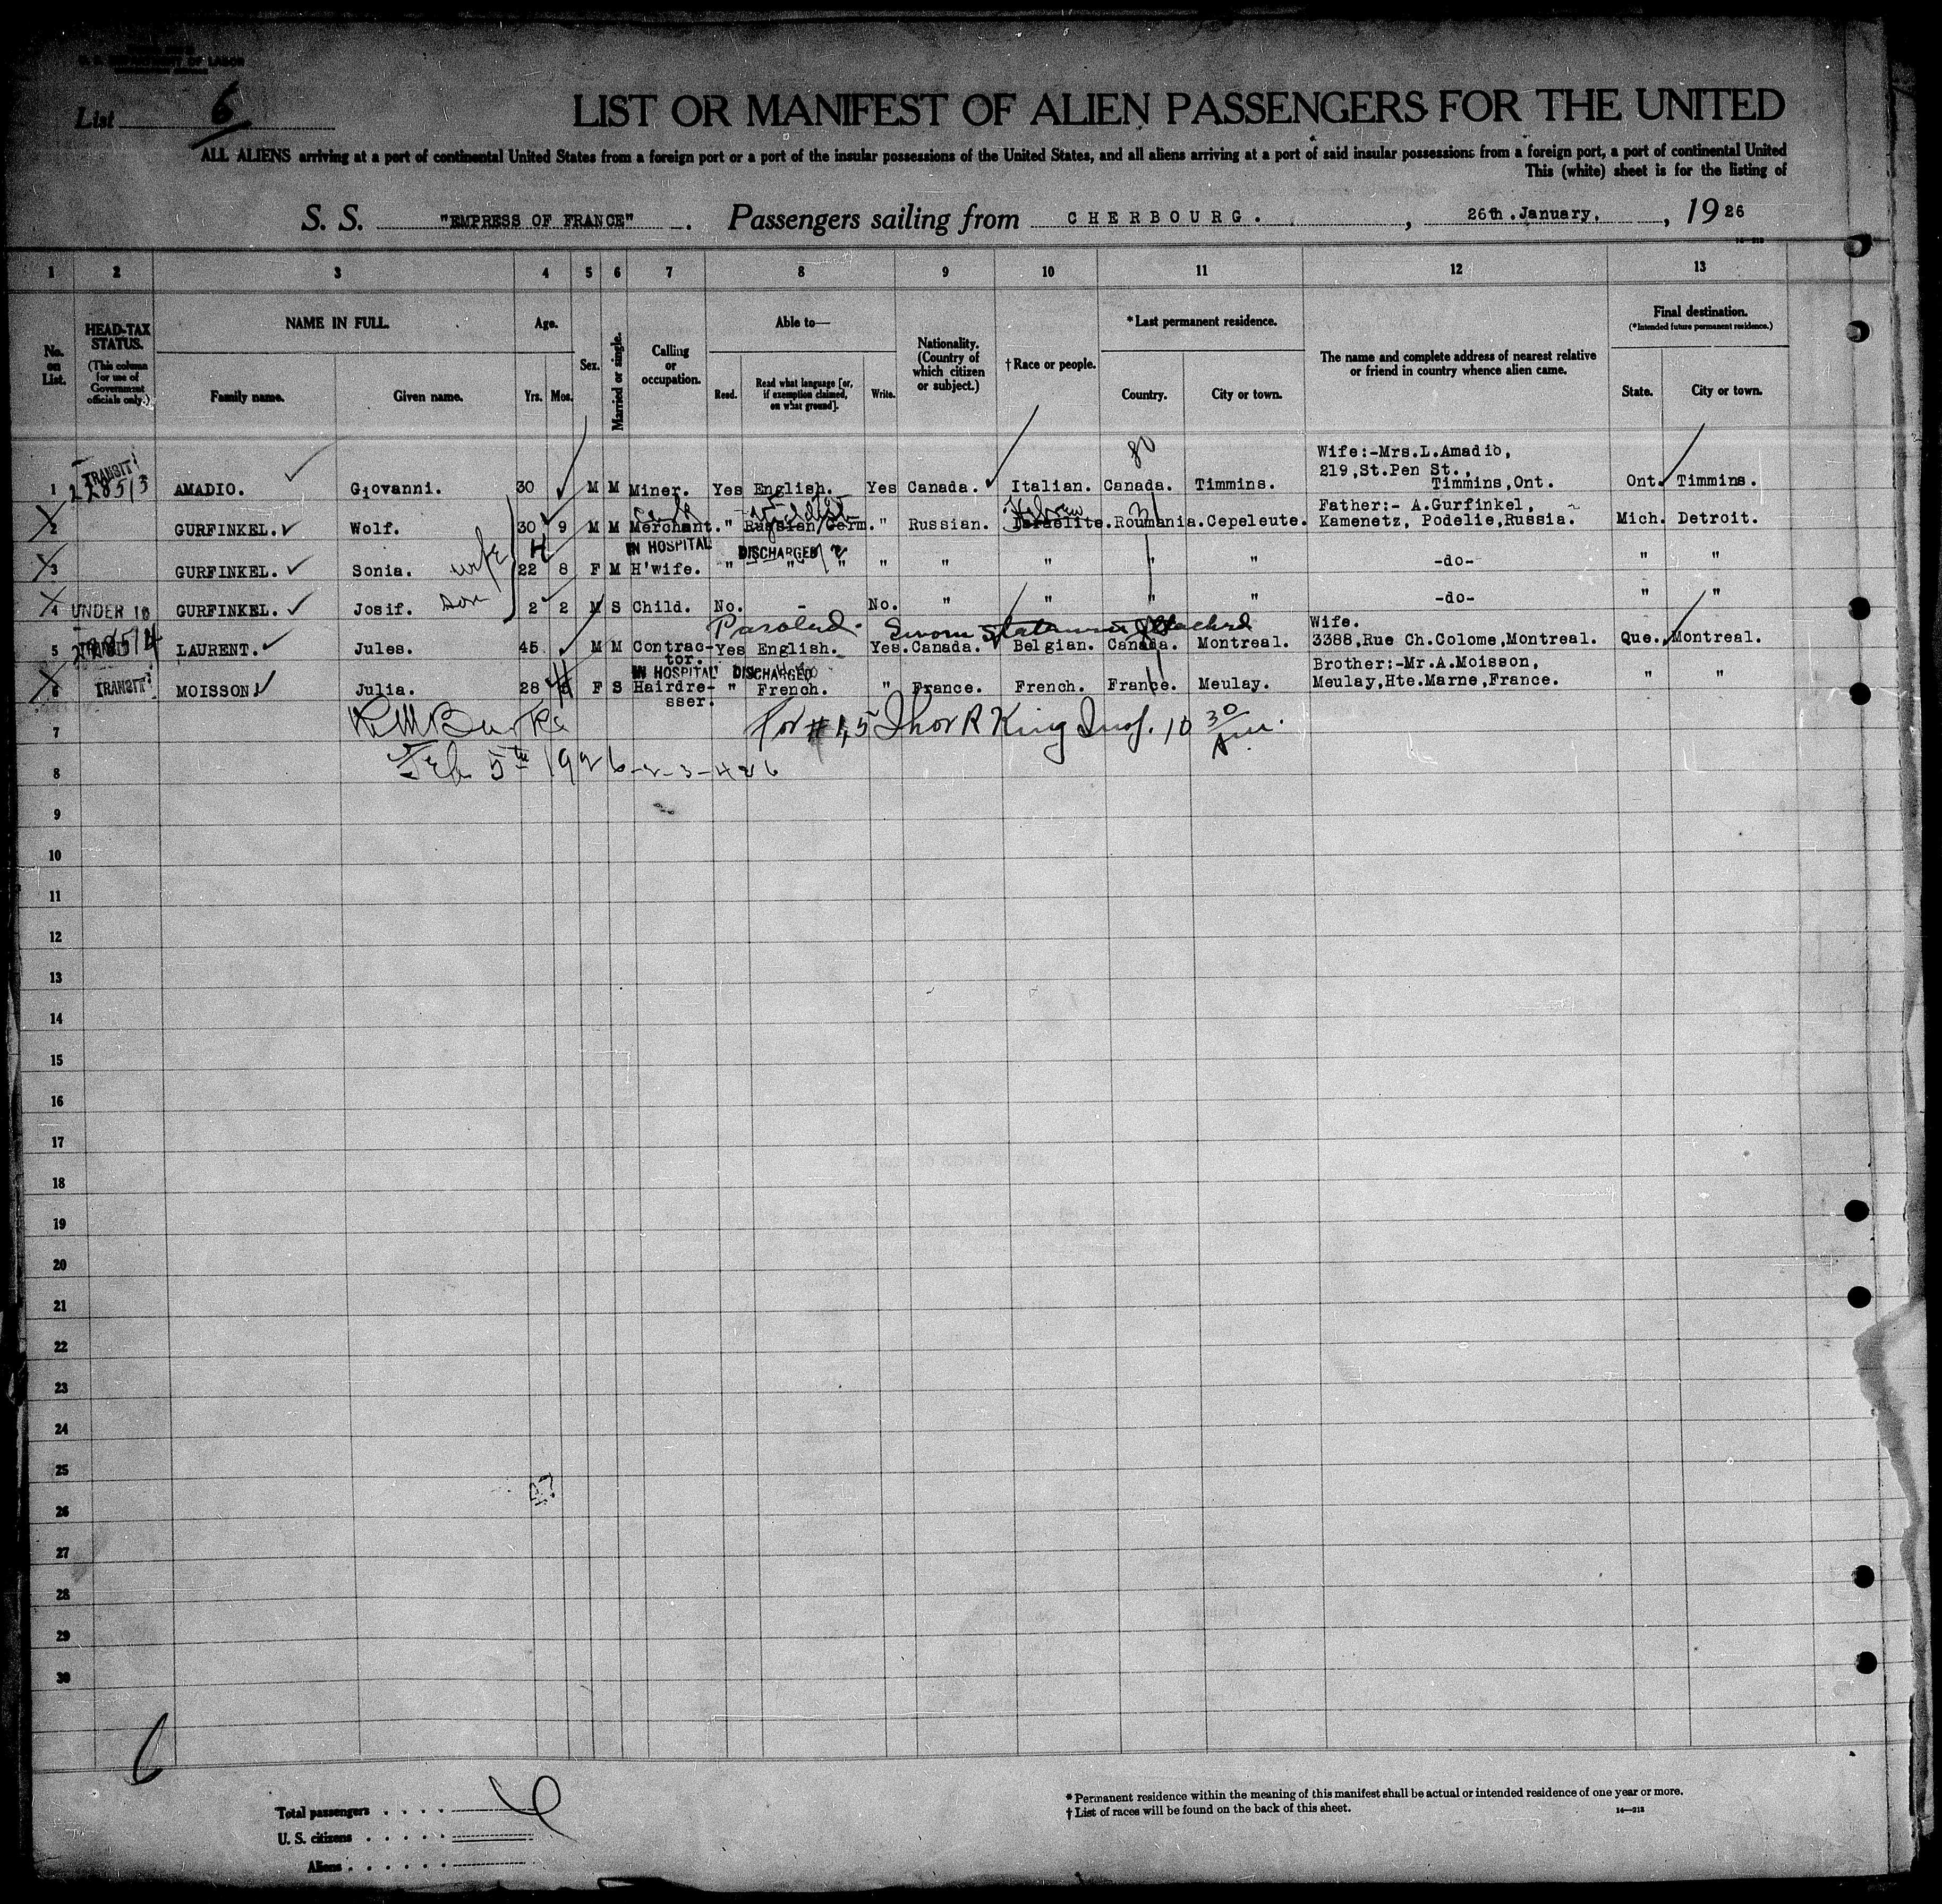 U. S. DEPARTMENT OF LABOR
List 6
LIST OR MANIFEST OF ALIEN PASSENGERS FOR THE UNITED
ALL ALIENS arriving at a port of continental United States from a foreign port or a port of the insular possessions of the United States, and all aliens arriving at a port of said insular possessions from a foreign port, a port of continental United
This (white) sheet is for the listing of
S. S. "EMPRESS OF FRANCE" . Passengers sailing from CHERBOURG. , 26th.January, , 1926
1 2 3 4 5 6 7 8 9 10 11 12 13
No. on List.
HEAD-TAX STATUS.
(This column for use of Government officials only.)
NAME IN FULL.
Family name. Given name.
Age.
Yrs. Mos.
Sex.
Married or single.
Calling or occupation.
Able to—
Read. Read what language [or, if exemption claimed, on what ground]. Write.
Nationality. (Country of which citizen or subject.)
† Race or people.
*Last permanent residence.
Country. City or town.
The name and complete address of nearest relative or friend in country whence alien came.
Final destination.
(*Intended future permanent residence.)
State. City or town.
80
Wife:-Mrs.L.Amadio,
219,St.Pen St.,
1 TRANSIT AMADIO. Giovanni. 30 M M Miner. Yes English. Yes Canada. Italian. Canada. Timmins. Timmins,Ont. Ont. Timmins.
Yiddish Hebrew Father:- A.Gurfinkel,
2 GURFINKEL. Wolf. 30 9 M M Merchant. " Russian/Germ. " Russian. Israelite. Roumania. Cepeleute. Kamenetz, Podelie,Russia. Mich. Detroit.
IN HOSPITAL DISCHARGED
3 GURFINKEL. Sonia. wife 22 8 F M H'wife. " " " " " " " " -do- " "
4 UNDER 16 GURFINKEL. Josif. son 2 2 M S Child. No. - No. " " " " -do- " "
Paroled. Sworn statement attached Wife.
5 TRANSIT LAURENT. Jules. 45 M M Contrac-tor. Yes English. Yes. Canada. Belgian. Canada. Montreal. 3388,Rue Ch.Colome,Montreal. Que. Montreal.
IN HOSPITAL DISCHARGED Brother:-Mr.A.Moisson,
6 TRANSIT MOISSON Julia. 28 F S Hairdre-sser. " French. " France. French. France. Meulay. Meulay,Hte.Marne,France. " "
7 for #1,5 Thor R King Insp. 10 30 Am.
8 Feb 5th 1926 - 2-3-4 & 6
9
10
11
12
13
14
15
16
17
18
19
20
21
22
23
24
25
26
27
28
29
30
6
Total passengers . . . . 6
U. S. citizens . . . . .
Aliens . . . . . .
* Permanent residence within the meaning of this manifest shall be actual or intended residence of one year or more.
† List of races will be found on the back of this sheet.
14—212